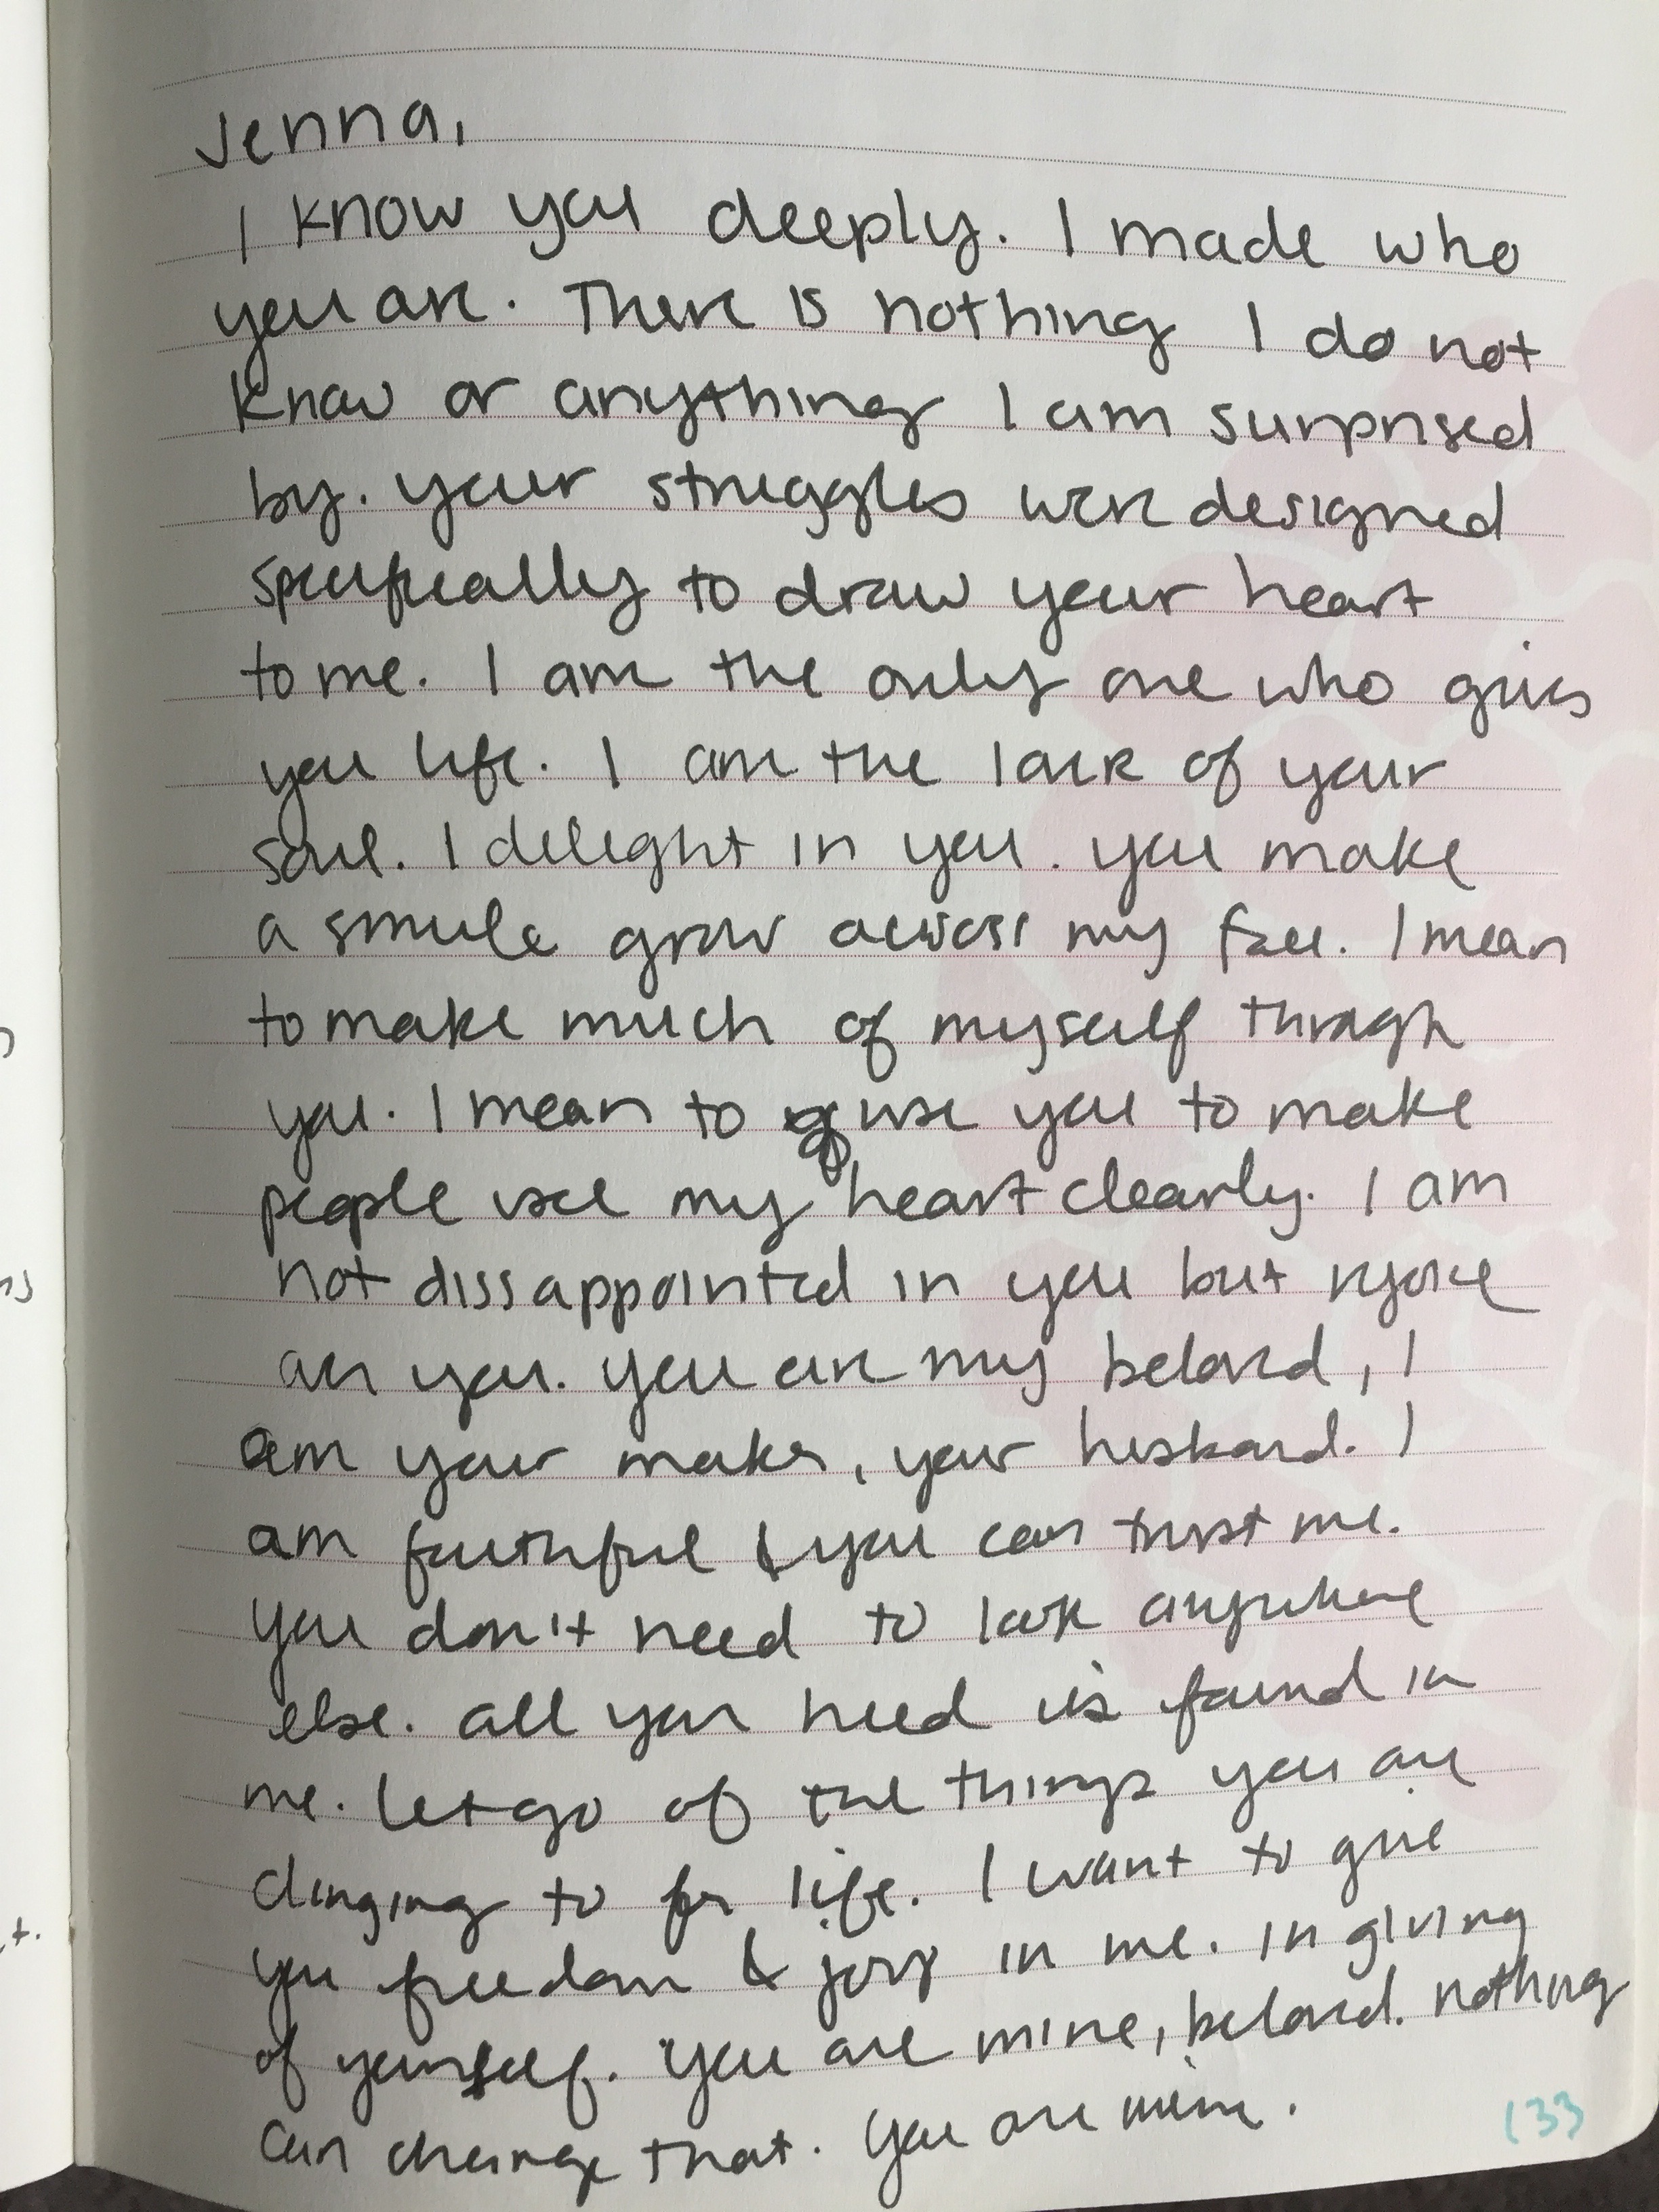 Jenna,
I know you deeply. I made who
you are. There is nothing I do not
know or anything I am surprised
by. your struggles were designed
specifically to draw your heart
to me. I am the only one who gives
you life. I am the lover of your
soul. I delight in you. you make
a smile grow across my face. I mean
to make much of myself through
you. I mean to use you to make
people see my heart clearly. I am
not dissappointed in you but rejoice
over you. you are my beloved, I
am your maker, your husband. I
am faithful & you can trust me.
you don't need to look anywhere
else. all you need is found in
me. let go of the things you are
clinging to for life. I want to give
you freedom & joy in me. in giving
of yourself. you are mine, beloved. nothing
can change that. you are mine.
133